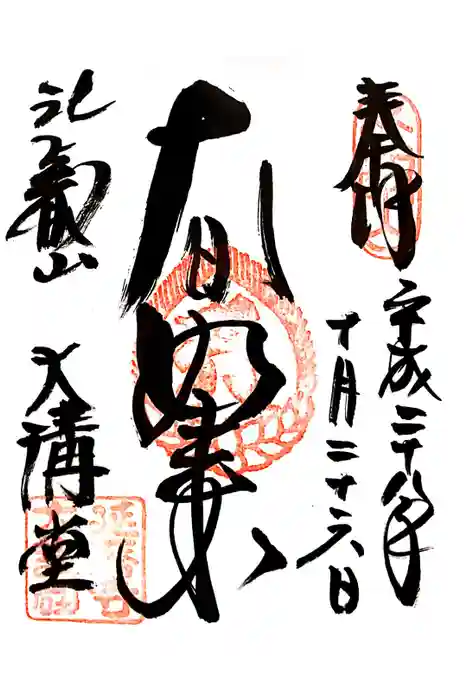 奉拝
平成二十八年
十月二十六日
大日如来
比叡山
大講堂